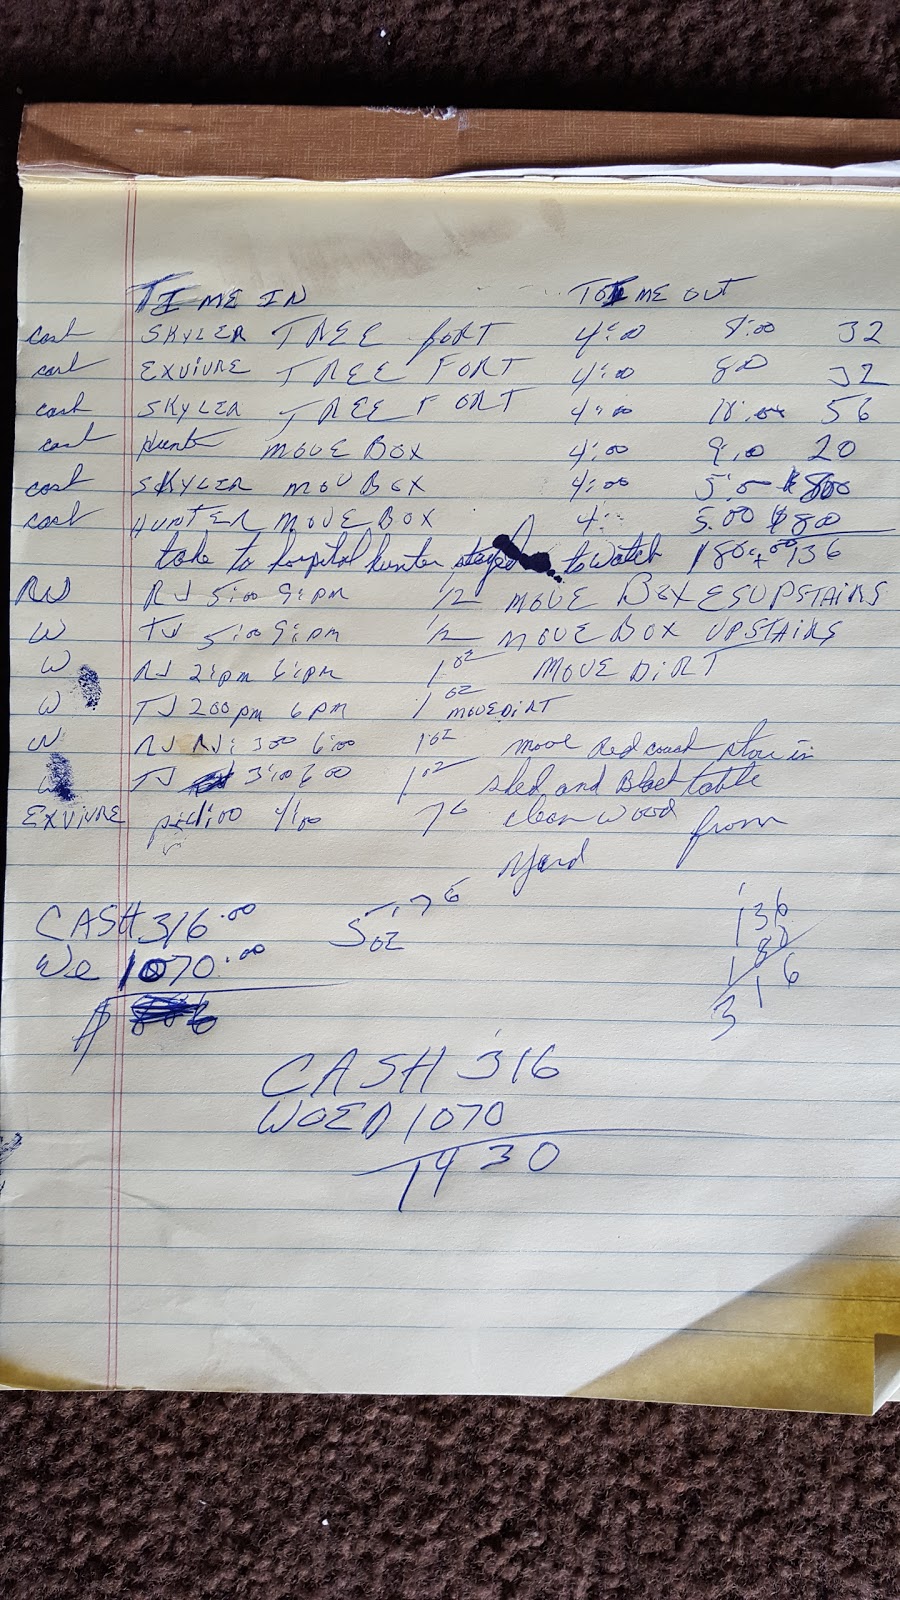 TIME IN TO TIME OUT
cash SKYLER TREE FORT 4:00 8:00 32
cash EXVIVRE TREE FORT 4:00 800 32
cash SKYLER TREE FORT 4:00 56
cash Hunter MOVE BOX 4:00 9:00 20
cash SKYLER MOV BOX 4:00 5:0 $800
cash HUNTER MOVE BOX 4: 5:00 $80
take to hospital hunter stayed to watch 180 + 136
RJ 5:00 9:pm 1/2 MOVE BOXES UPSTAIRS
W TJ 5:00 9:pm 1/2 MOVE BOX UPSTAIRS
W RJ 2:pm 6:pm 1 oz MOVE DIRT
W TJ 200pm 6pm 1 oz MOVE DIRT
W RJ RJ: 300 6:00 1 oz move Red couch stow in
W TJ 3:00 600 1 oz shed and Black table
EXVIVRE 4:00 76 clean wood from
yard
CASH 316.00 5oz 76 136
We 1070.00 180
$ 316
CASH 316
WOED 1070
1430